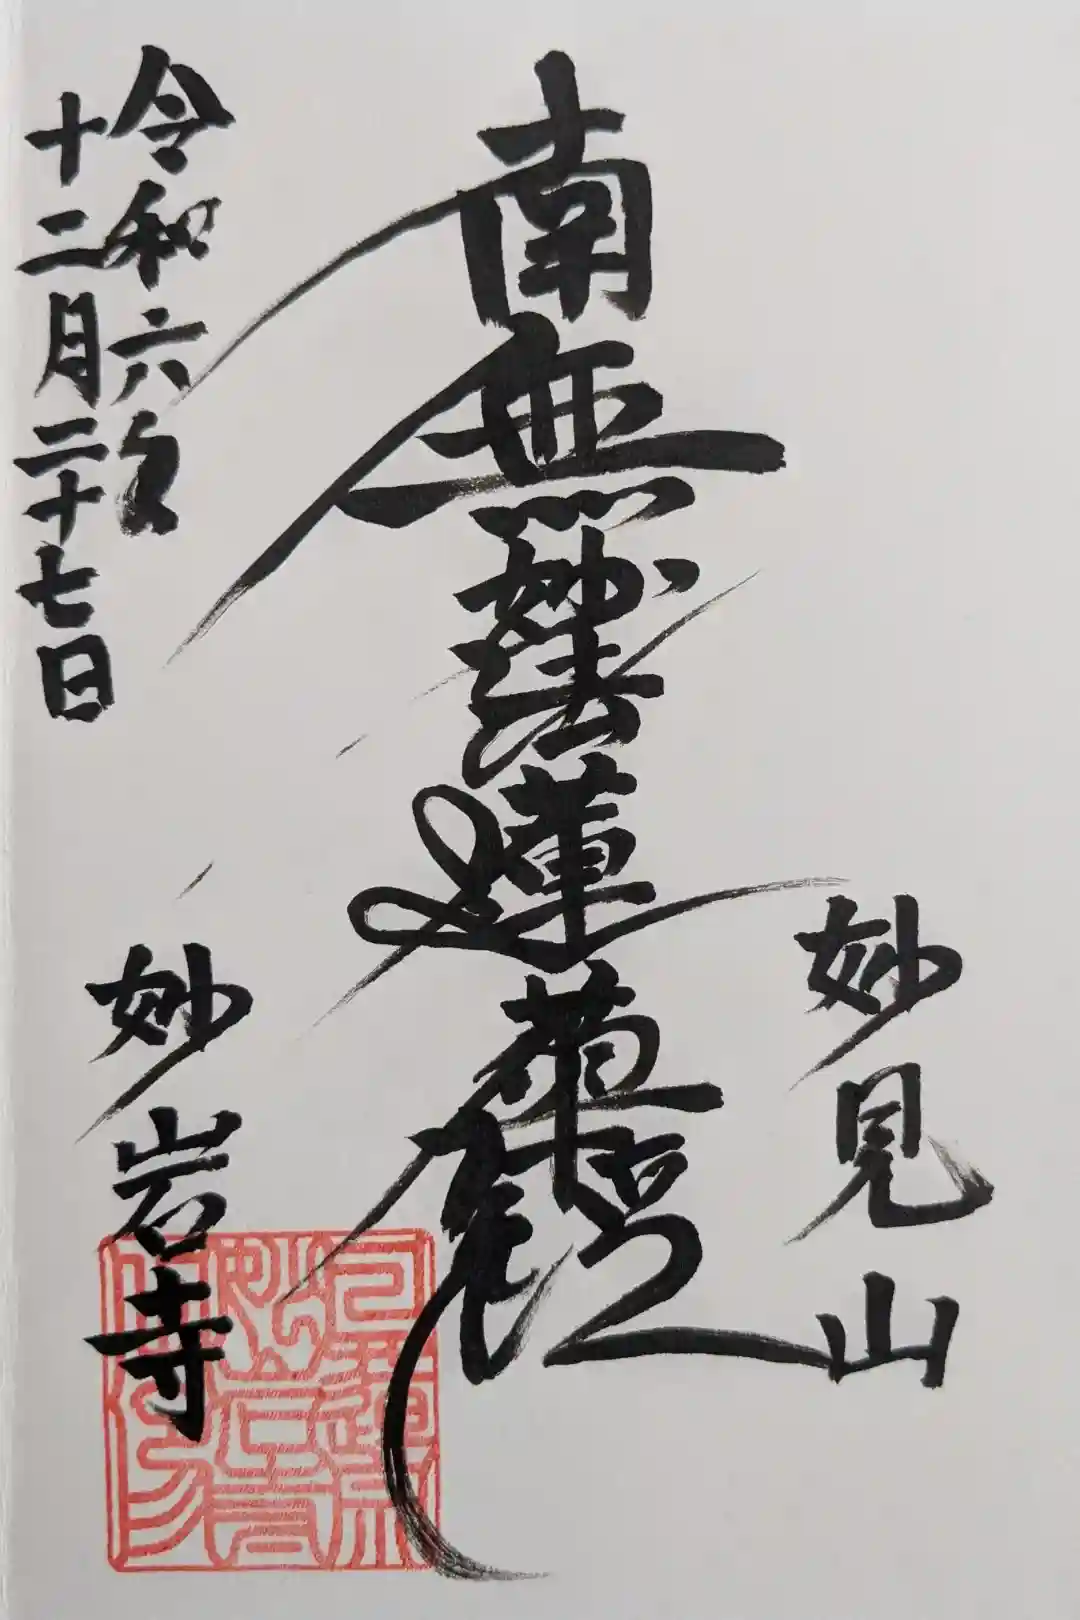 妙見山
南無妙法蓮華経
令和六年
十二月二十七日
妙岩寺